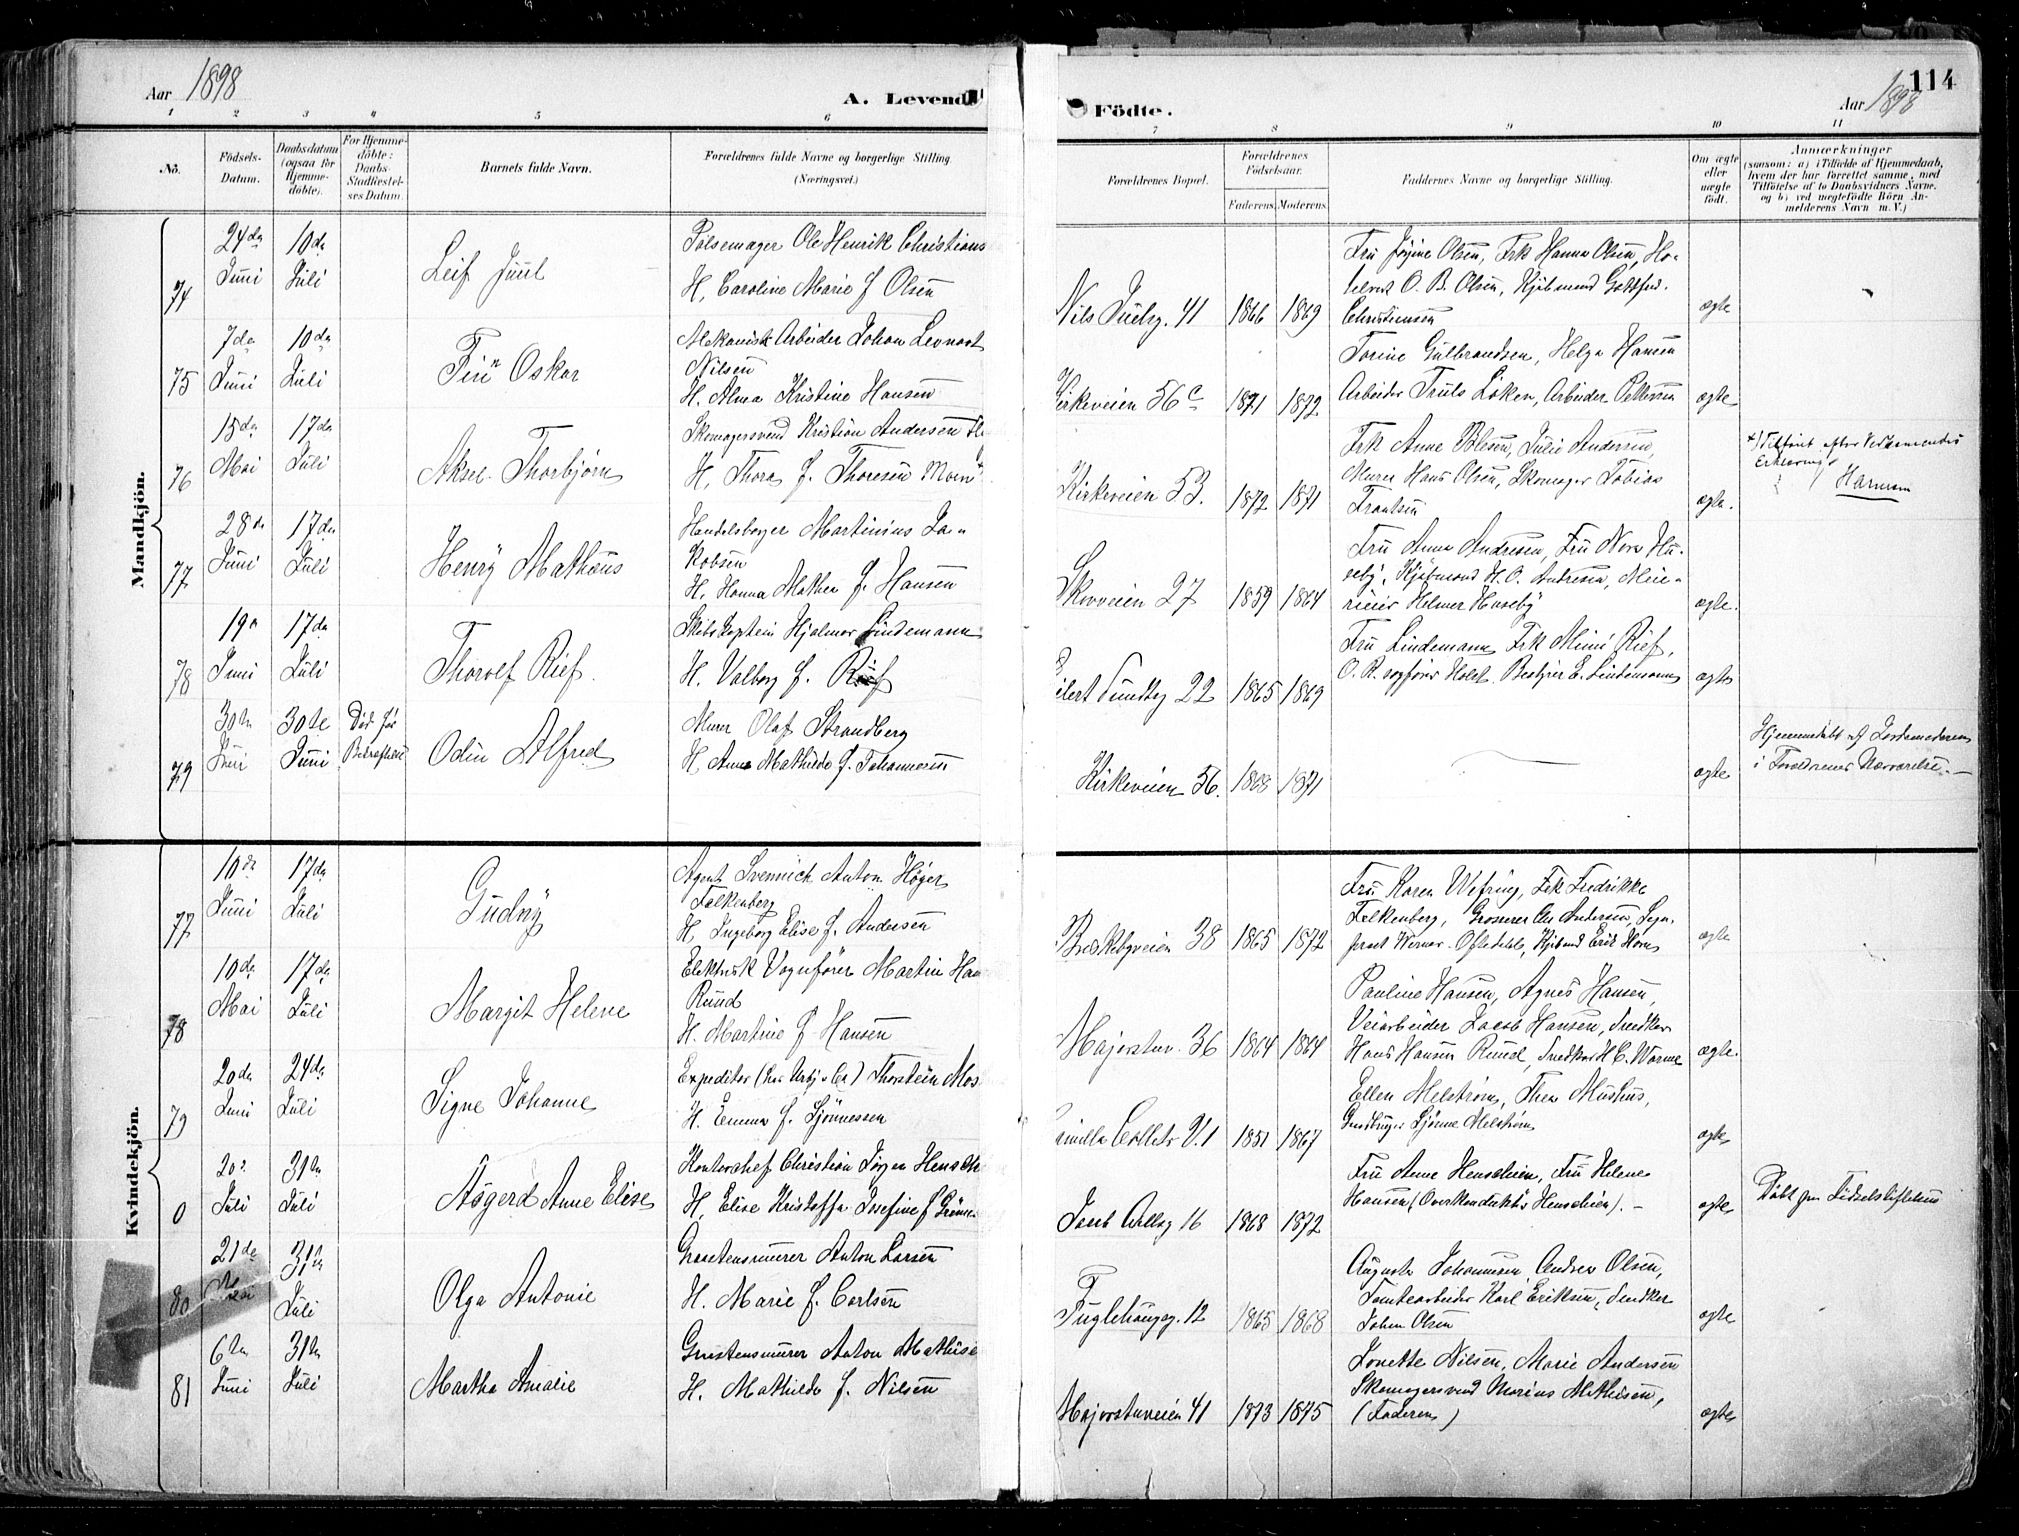 Aar 1898
A. Levende
Födte.
Aar 1898
114
1 2 3 4 5 6 7 8 9 10 11
No.
Födsels-
Datum.
Daabsdatum
(ogsaa för
Hjemme-
döbte).
For Hjemme-
döbte:
Daabs-
Stadfæstel-
ses Datum.
Barnets fulde Navn.
Forældrenes fulde Navne og borgerlige Stilling
(Næringsvei.)
Forældrenes Bopæl.
Forældrenes
Födselsaar.
Faderens. Moderens.
Faddernes Navne og borgerlige Stilling.
Om ægte
eller
uægte
födt.
Anmærkninger
(saasom: a) i Tilfælde af Hjemmedaab,
hvem der har forrettet samme, med
Tilföielse af to Daabsvidners Navne.
og b) ved uægtefödte Börn An-
melderens Navn m. V.)
Mandkjön.
74
24de
Juni
10de
Juli
Leif Juul
Pølsemager Ole Henrik Christians
H. Caroline Marie f Olsen
Nils Juelsg. 41
1866 1869
Fru Jøgine Olsen, Frk Hanna Olsen,
O. B. Olsen, Kjøbmand
Christiansen
ægte
75
7de
Juni
10de
Juli
Finn Oskar
Mekanisk Arbeider Johan Lennart
Nilsen
H. Alma Kristine Hansen
Kirkeveien 56c
1871 1872
Torine Gulbrandsen, Helga Hansen
Arbeider Truls Løken, Arbeider Pettersen
ægte
76
15de
Mai
17de
Juli
Aksel Thorbjørn
Skomagersvend Kristian Andersen
H. Thora f. Thoresen Moen
Kirkeveien 53.
1872 1871
Frk Anne Olsen, Julie Andersen,
Murer Hans Olsen, Skomager Tobias
Frantsen
ægte.
Tilføiet efter
Erklæring
77
28de
Juni
17de
Juli
Henry Mathæus
Handelsborger Martinius Ja-
kobsen
H. Hanna Mathea f. Hansen
Skovveien 27
1859 1864
Fru Anna Andresen, Fru Nora Hu-
seby, Kjøbmand H. O. Andresen, Mei-
rieier Helmer Huseby
ægte.
78
19de
Juni
17de
Juli
Thorolf Rief.
Skibskaptein Hjalmar Lindemann
H. Valborg f. Rief
Eilert Sundtsg 22
1865 1869
Fru Lindemann, Frk Mimi Rief,
O. R. sagfører Holst. Bestyrer E. Lindemann
ægte
79
30te
Juni
30te
Juni
Død før
Bekræftelse
Odin Alfred
Murer Olaf Strandberg
H. Anna Mathilde f. Johannesen
Kirkeveien 56.
1868 1871
ægte
Hjemmedøbt af Jordemoderen
i Forældrenes Nærværelse.
Kvindekjön.
77
10de
Juni
17de
Juli
Gudny
Agent Svennich Anton Høyer
Falkenberg
H. Ingeborg Elise f. Andersen
Briskebyveien 38
1865 1872
Fru Karen Wefring, Frk Fredrikke
Falkenberg, Grosserer Chr Andersen,
Werner Oftedahl, Kjøbmd Erik Horn
ægte
78
10de
Mai
17de
Juli
Margit Helene
Elektrisk Vognfører Martin Han
Ruud
H. Martine f Hansen
Majorstuv. 36
1864 1864
Pauline Hansen, Agnes Hansen,
Veiarbeider Jacob Hansen, Snedker
Hans Hansen Ruud, Snedker H. C. Worme
ægte.
79
20de
Juni
24de
Juli
Signe Johanne
Expeditør (hos Urbye & Co) Thorstein Mos
H. Emma f. Sjønnessen
Camilla Colletts V. 1
1851 1867
Ellen Melstrøm, Thea Mushus,
Gaardbruger Sjønne Melstrøm
ægte
0
20de
Juli
31te
Juli
Aasgerd Anne Elise
Kontorchef Christian Jørgen Henschien
H. Elise Kristoffa Josefine f Grønn
Jacob Aallsg 16
1868 1872
Fru Anne Henschien, Fru Helene
Hansen (Overkonduktør Henschien). -
ægte
Døbt paa Fødselsstiftelsen
80
21de
Mai
31te
Juli
Olga Antonie
Graastensmurer Anton Larsen
H. Marie f. Carlsen
Fuglehaugsg. 12
1865 1868
Augusta Johannesen Andrea Olsen,
Tomtearbeider Karl Eriksen, Snedker
Johan Olsen
ægte
81
6te
Juni
31te
Juli
Martha Amalie
Graastensmurer Anton Mathise
H. Mathilde f. Nilsen
Majorstuveien 41
1873 1875
Lonette Nilsen, Marie Andersen
Skomagersvend Marius Mathisen,
(Faderen)
ægte